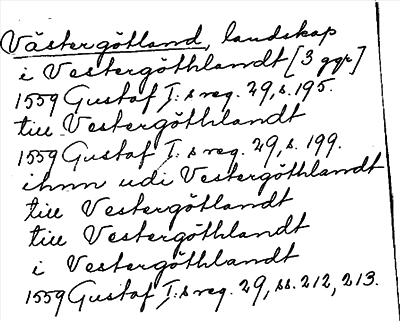 Västergötland, landskap
i Vestergöthlandt [3 ggr]
1559 Gustaf I:s reg. 29, s. 195.
till Vestergöthlandt
1559 Gustaf I:s reg. 29, s. 199.
ihnn udi Vestergöthlandt
till Vestergötlandt
till Vestergöthlandt
i Vestergöthlandt
1559 Gustaf I:s reg. 29, ss. 212, 213.